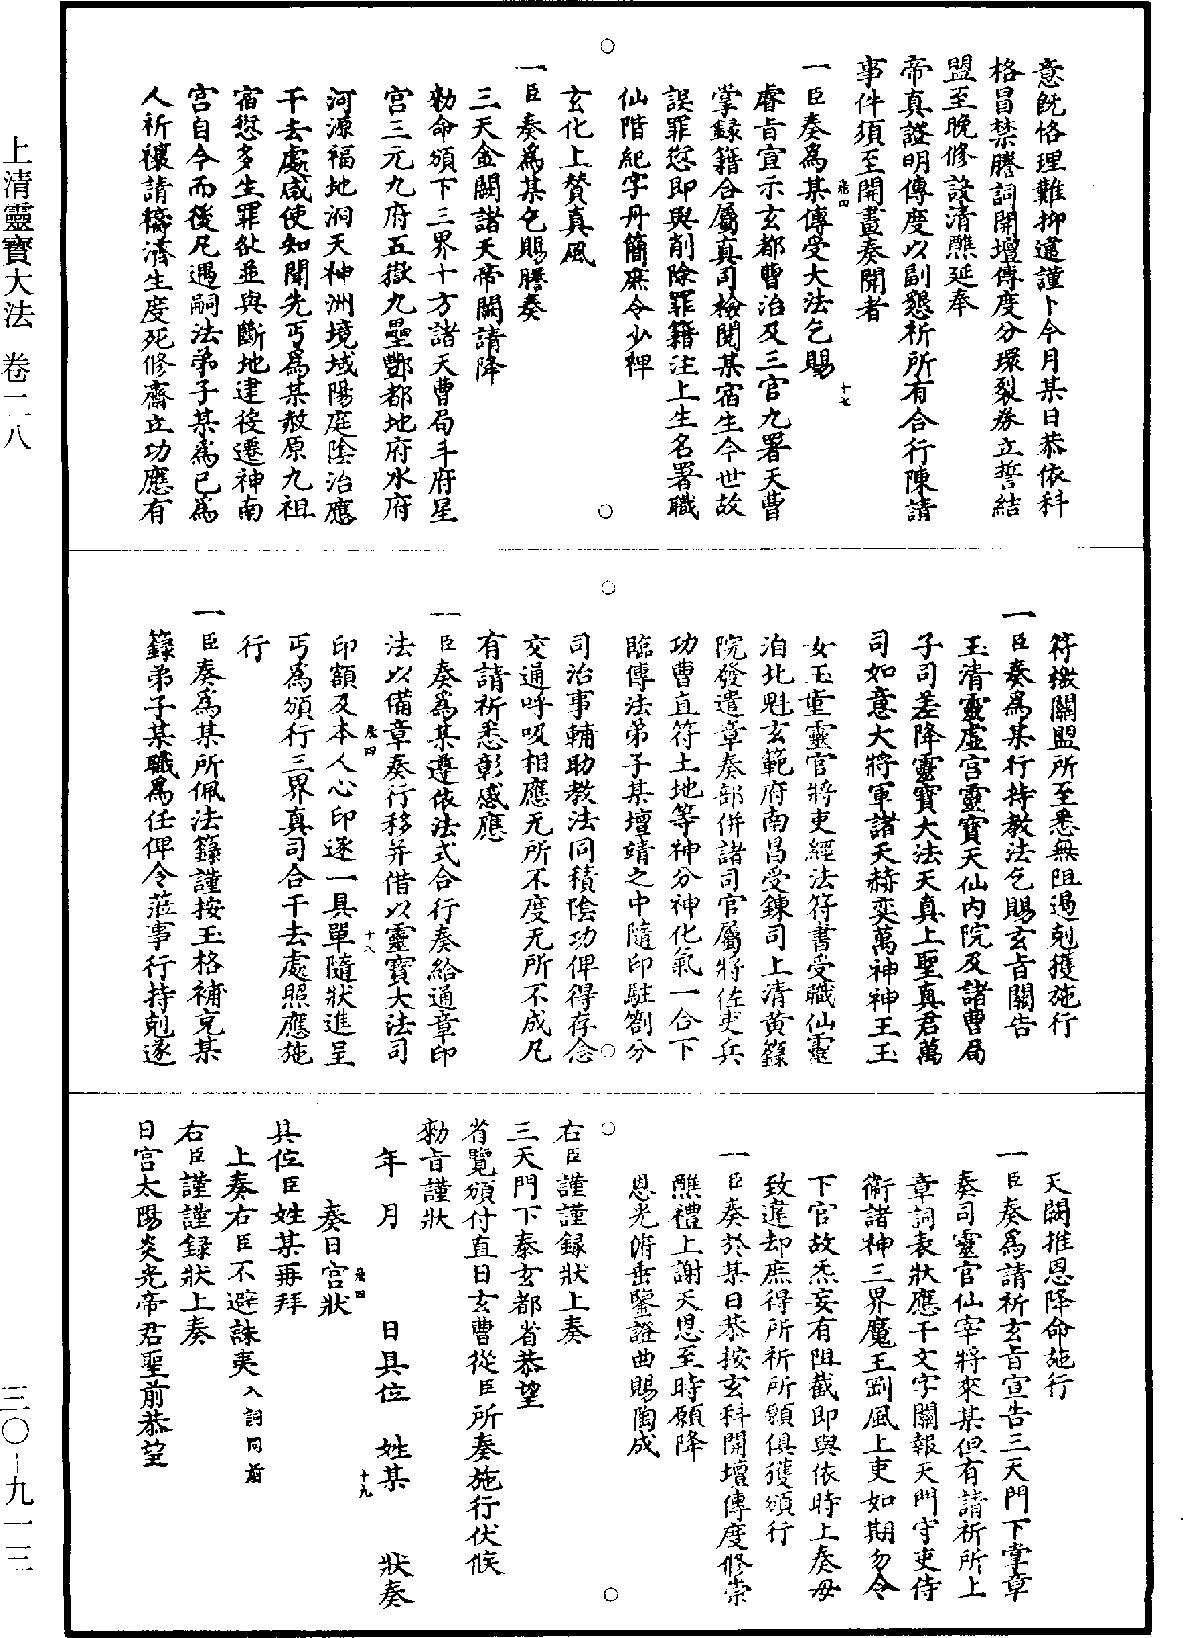 上清靈寶大法 卷二八
三〇-九一三
意旣恪理難抑違謹卜今月某日恭依科
格昌禁謄詞開壇傳度分環裂券立誓結
盟至晚修設清醮延奉
帝真證明傳度以副懇祈所有合行陳請
事件須至開畫奏聞者
一臣奏爲某傳受大法乞賜
睿旨宣示玄都曹治及三官九署天曹
掌録籍合屬真司檢閱某宿生今世故
誤罪愆即與削除罪籍注上生名署職
仙階紀字丹簡庶令少裨
玄化上贊真風
一臣奏爲某乞賜謄奏
三天金闕諸天帝闕請降
勑命頒下三界十方諸天曹局斗府星
宮三元九府五嶽九壘酆都地府水府
河源福地洞天神洲境域陽庭陰治應
干去處咸使知聞先丐爲某赦原九祖
宿愆多生罪尤並與斷地逮後遷神南
宮自今而後凡遇嗣法弟子某爲己爲
人祈禳請禱濟生度死修齋立功應有
符檄關盟所至悉無阻遏剋獲施行
一臣奏爲某行持教法乞賜玄旨關告
玉清靈虛宮靈寶天仙內院及諸曹局
子司差降靈寶大法天真上聖真君萬
司如意大將軍諸天赫奕萬神神王玉
女玉童靈官將吏經法符書受職仙靈
洎北魁玄範府南昌受鍊司上清黃籙
院發遣章奏部併諸司官屬將佐吏兵
功曹直符土地等神分神化氣一合下
臨傳法弟子某壇靖之中隨印駐劄分
司治事輔助教法同積陰功俾得存念
交通呼吸相應无所不度无所不成凡
有請祈悉彰感應
一臣奏爲某遵依法式合行奏給通章印
法以備章奏行移并借以靈寶大法司
印額及本人心印逐一具單隨狀進呈
丐爲頒行三界真司合干去處照應施
行
一臣奏爲某所佩法籙謹按玉格補充某
籙弟子某職爲任俾令蒞事行持剋遂
天闕推恩降命施行
一臣奏爲請祈玄旨宣告三天門下掌章
奏司靈官仙宰將來某但有請祈所上
章詞表狀應干文字關報天門守吏侍
衞諸神三界魔王劉風上吏如期勿令
下官故炁妄有阻截即與依時上奏毋
致違却庶得所祈所願俱獲頒行
一臣奏於某日恭按玄科開壇傳度修崇
醮禮上謝天恩至時願降
恩光俯垂鑒證曲賜陶成
右臣謹謹録狀上奏
三天門下泰玄都省恭望
省覽頒付直日玄曹從臣所奏施行伏候
勑旨謹狀
年 月 日具位 姓某 狀奏
奏日宮狀
具位臣姓某再拜
上奏右臣不避誅夷入詞同前
右臣謹謹録狀上奏
日宮太陽炎光帝君聖前恭望